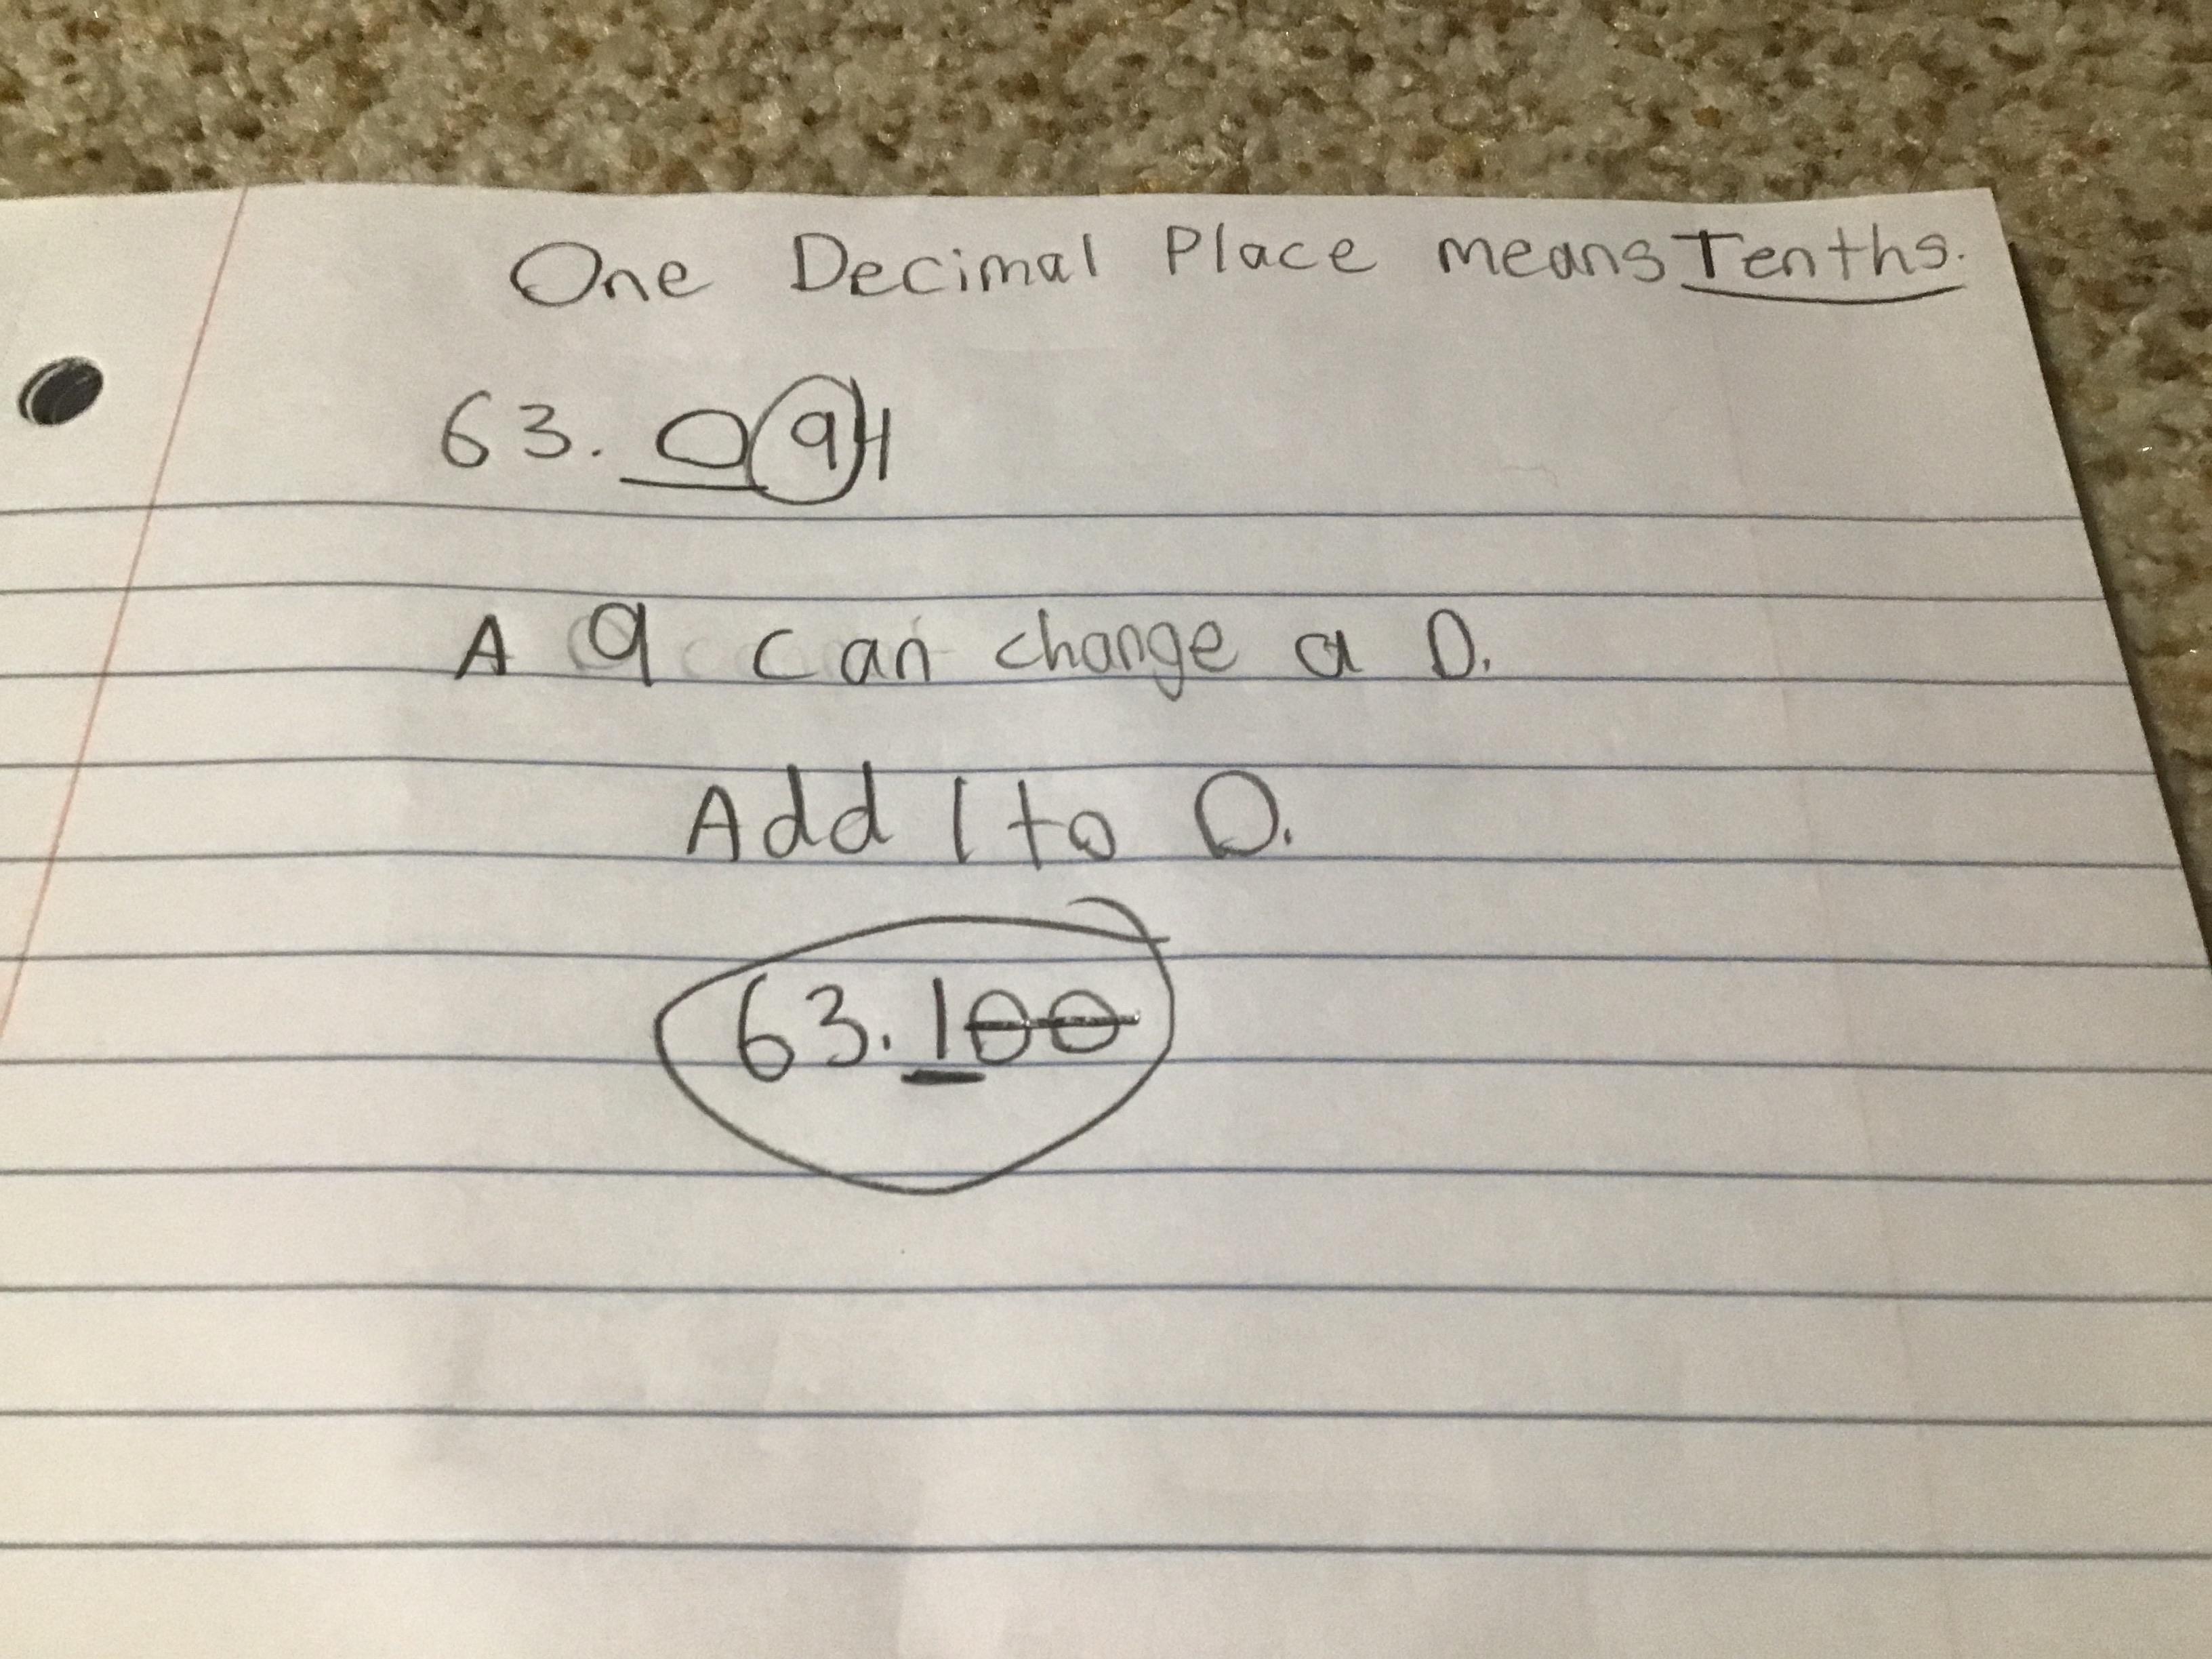 One Decimal Place means Tenths.
63.094
A 9 can change a 0.
Add 1 to 0.
63.100